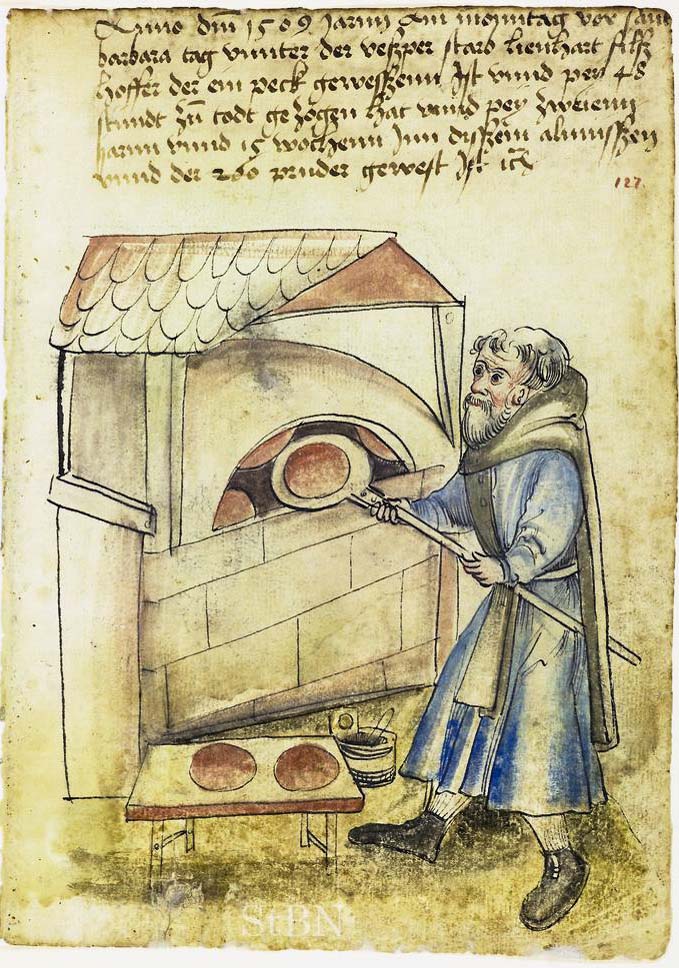 Anno dm 1509 Jarnn Am monntag vor sant
barbara tag vnnter der veszper starb lienhart filsz
hoffer der ein peck gewesszenn Ist vnnd pey 48
stundt zü todt gezogen hat vnnd pey zweienn
Jarnn vnnd 15 wochenn Inn disszem almusszen
vnnd der 260 pruder gewest Ist
127.
StBN